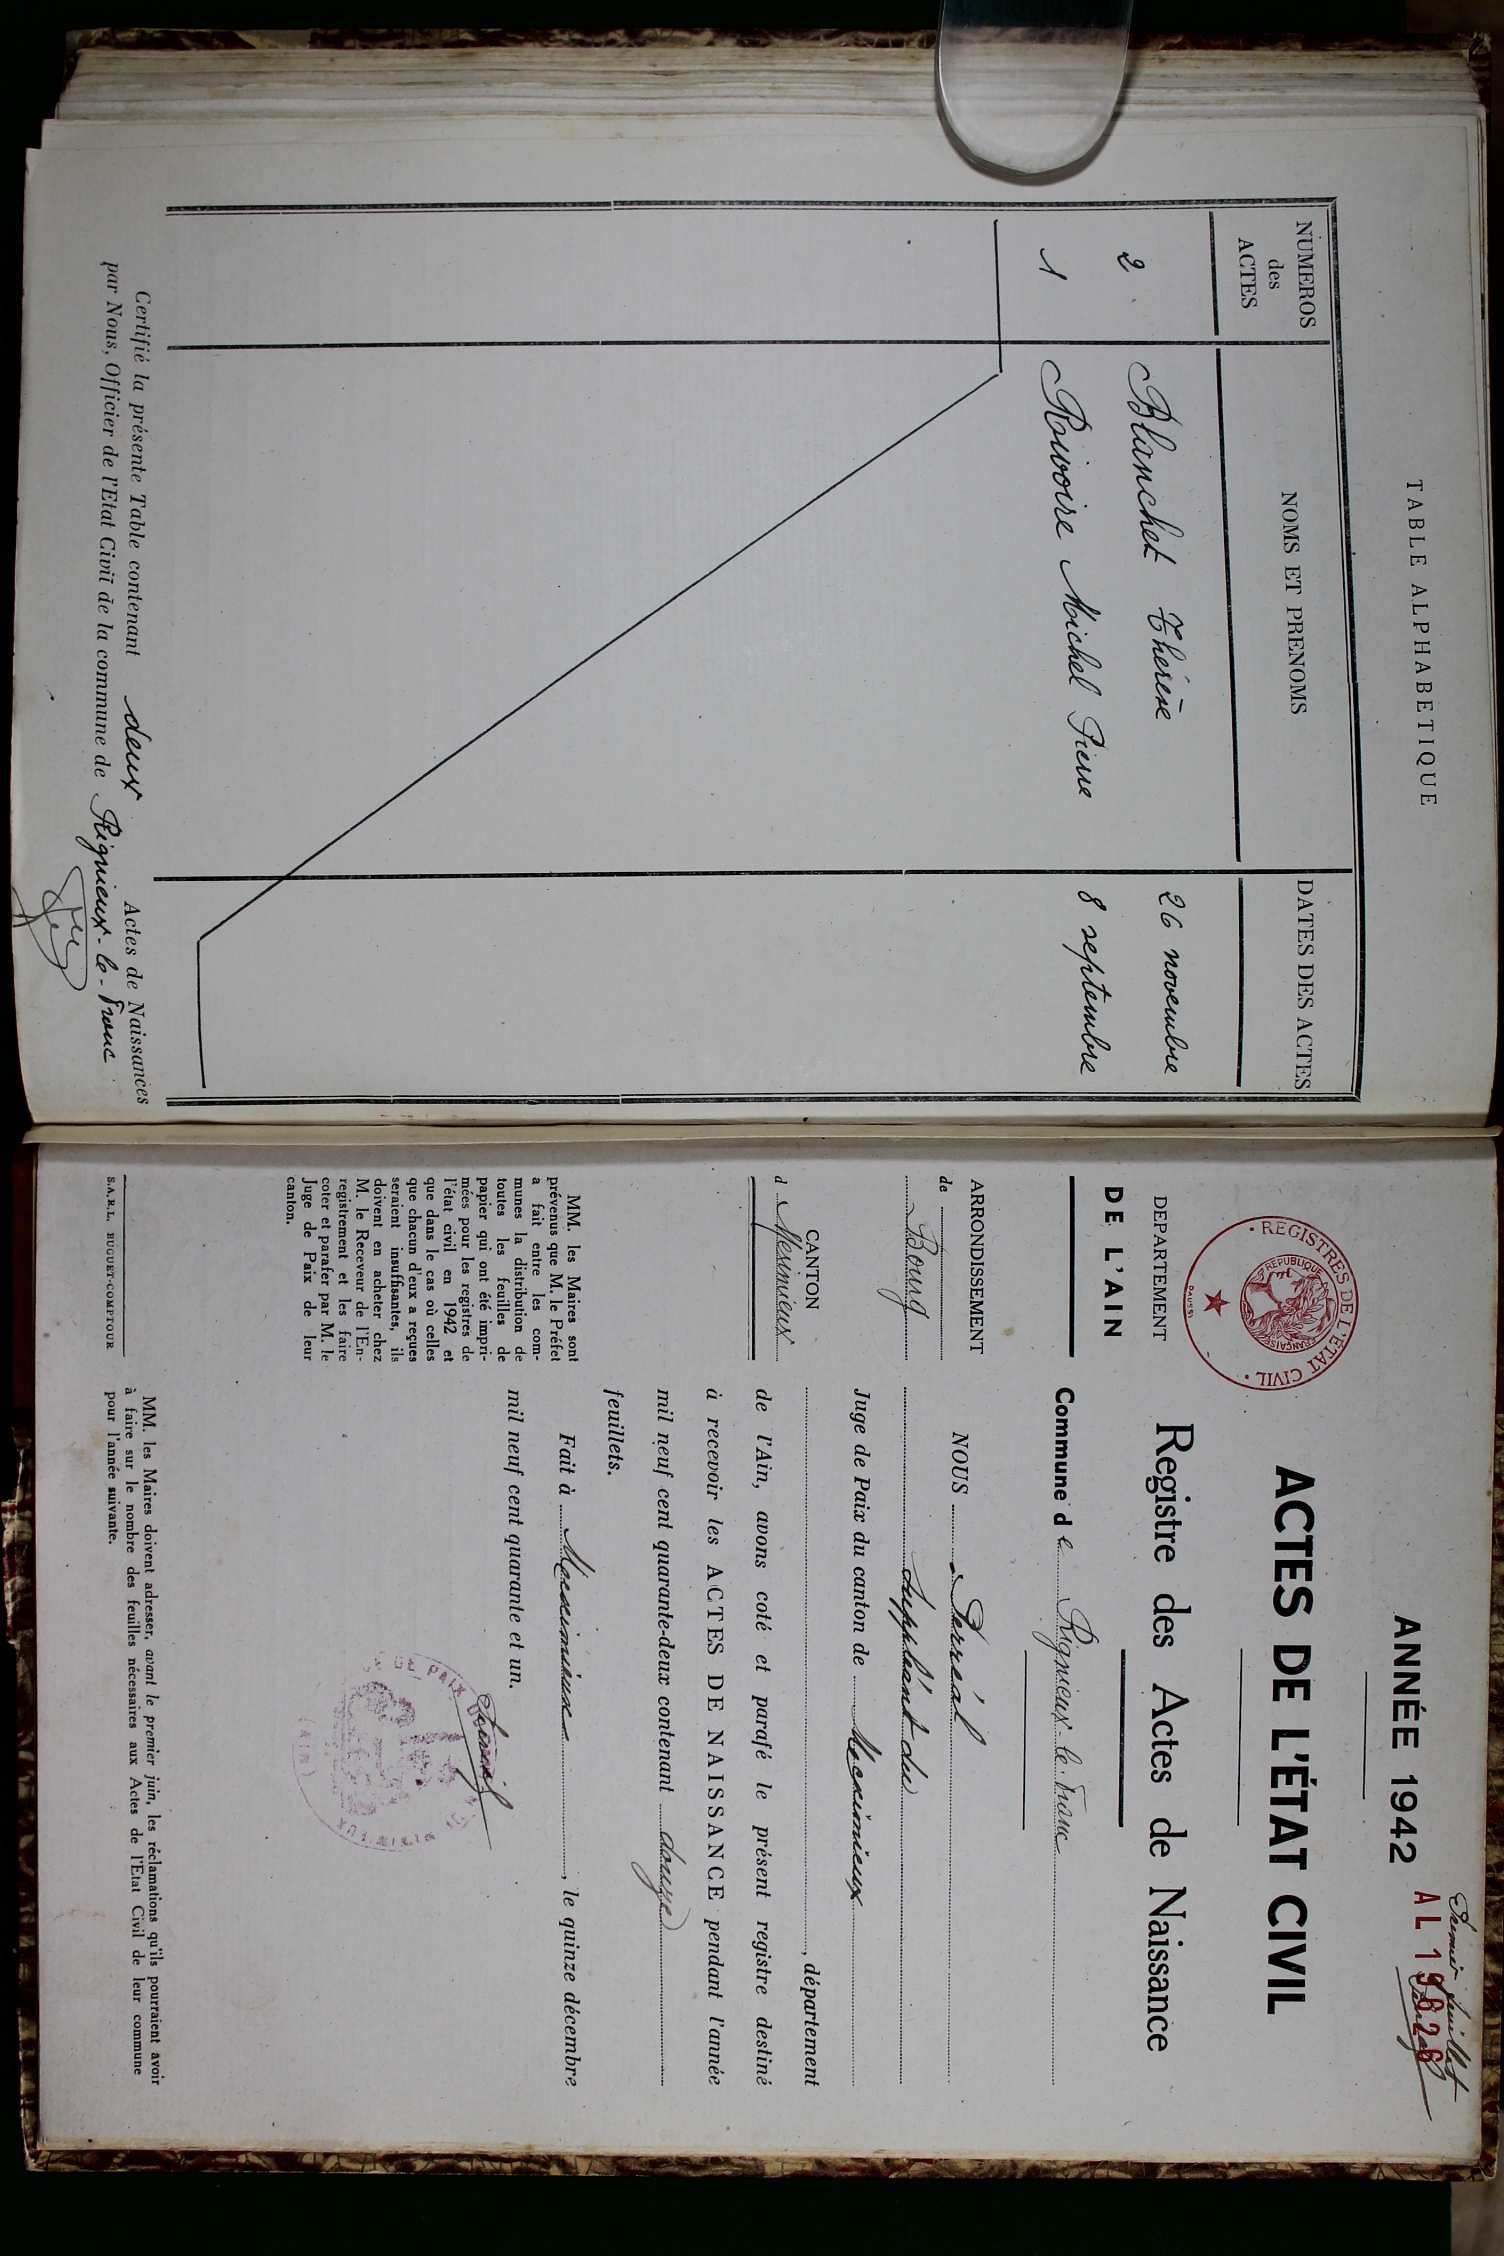 TABLE ALPHABETIQUE
NUMEROS des ACTES
NOMS ET PRENOMS
DATES DES ACTES
2 Blanchet Thérèse 26 novembre
1 Rivoire Michel Pierre 8 septembre
Certifié la présente Table contenant deux Actes de Naissances
par Nous, Officier de l'Etat Civil de la commune de Rignieux-le-Franc
Premier feuillet
AL 19826
ANNÉE 1942
REGISTRES DE L'ÉTAT CIVIL
RÉPUBLIQUE FRANÇAISE
ACTES DE L'ÉTAT CIVIL
Registre des Actes de Naissance
DEPARTEMENT
DE L'AIN
ARRONDISSEMENT
de
Bourg
CANTON
d Meximieux
MM. les Maires sont
prévenus que M. le Préfet
a fait entre les com-
munes la distribution de
toutes les feuilles de
papier qui ont été impri-
mées pour les registres de
l'état civil en 1942 et
que dans le cas où celles
que chacun d'eux a reçues
seraient insuffisantes, ils
doivent en acheter chez
M. le Receveur de l'En-
registrement et les faire
coter et parafer par M. le
Juge de Paix de leur
canton.
S.A.R.L. BUGUET-COMPTOUR
Commune de Rignieux le Franc
NOUS Perréal
Suppléant du
Juge de Paix du canton de Meximieux
, département
de l'Ain, avons coté et parafé le présent registre destiné
à recevoir les ACTES DE NAISSANCE pendant l'année
mil neuf cent quarante-deux contenant douze
feuillets.
Fait à Meximieux, le quinze décembre
mil neuf cent quarante et un.
DE PAIX
(AIN)
MM. les Maires doivent adresser, avant le premier juin, les réclamations qu'ils pourraient avoir
à faire sur le nombre des feuilles nécessaires aux Actes de l'Etat Civil de leur commune
pour l'année suivante.